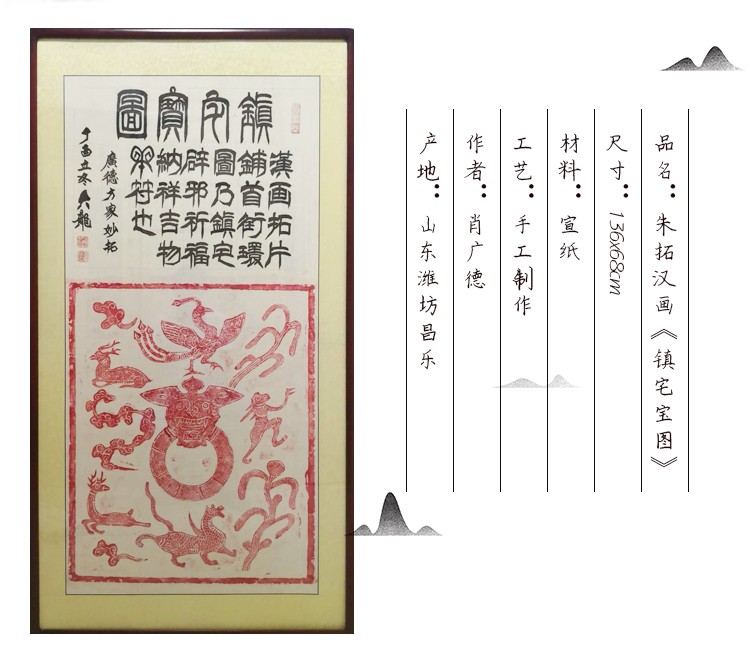 鎮宅寶圖
漢画拓片
鋪首銜環
圖乃鎮宅
辟邪祈福
納祥吉物
符也
廣德方家妙拓
丁酉立冬 龍
品名：朱拓汉画《镇宅宝图》
尺寸：136x68cm
材料：宣纸
工艺：手工制作
作者：肖广德
产地：山东潍坊昌乐